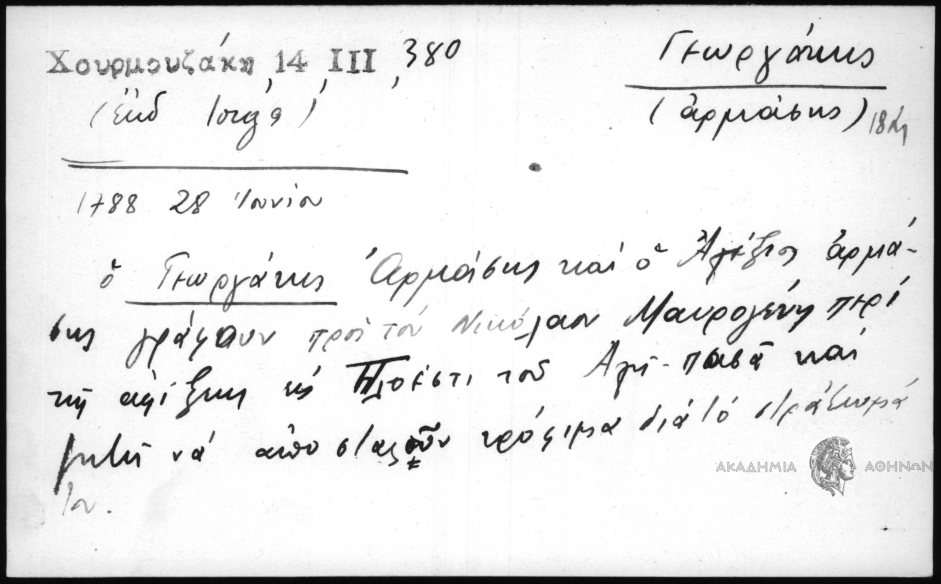 Χουρμουζάκη 14 III, 380
Γεωργάκης
(ἀρμάσης)
1788 28 Ἰουνίου
ὁ Γεωργάκης Ἀρμάσης καὶ ὁ Ἀλέξης ἀρμά-
σης γράφουν πρὸς τὸν Νικόλαον Μαυρογένη περὶ
τῆς ἀφίξεως εἰς Πλοέστι τοῦ Ἀλῆ-πασᾶ καὶ
ζητεῖ νὰ ἀποσταλοῦν τρόφιμα διὰ τὸ στράτευμά
του.
ΑΚΑΔΗΜΙΑ ΑΘΗΝΩΝ